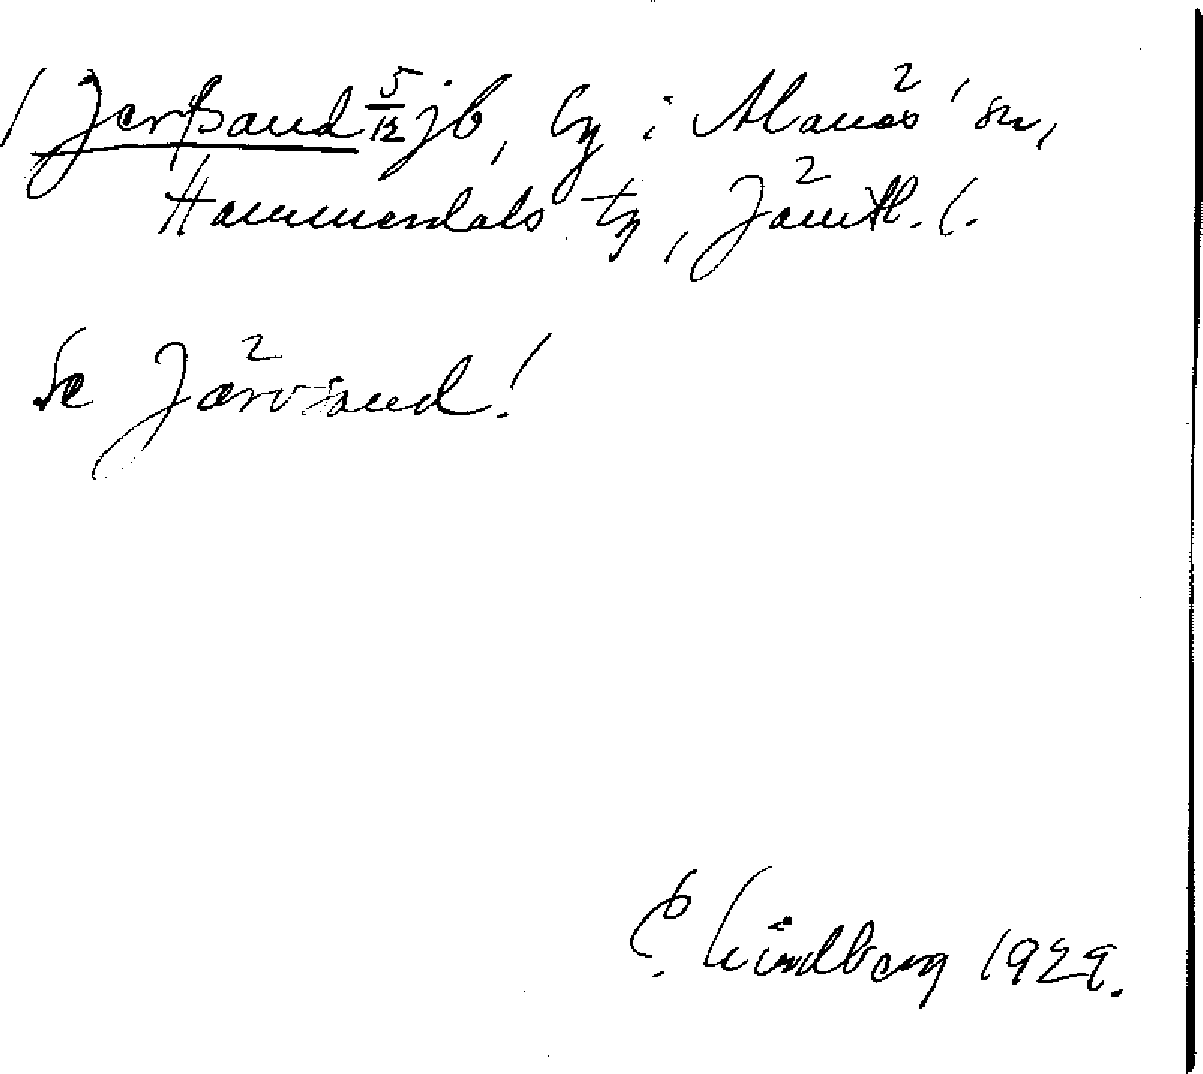 Jerßand 5/12 jb, by i Alanäs' sn,
Hammerdals tg, Jämtl. l.
Se Järvsand!
E. Lindberg 1929.